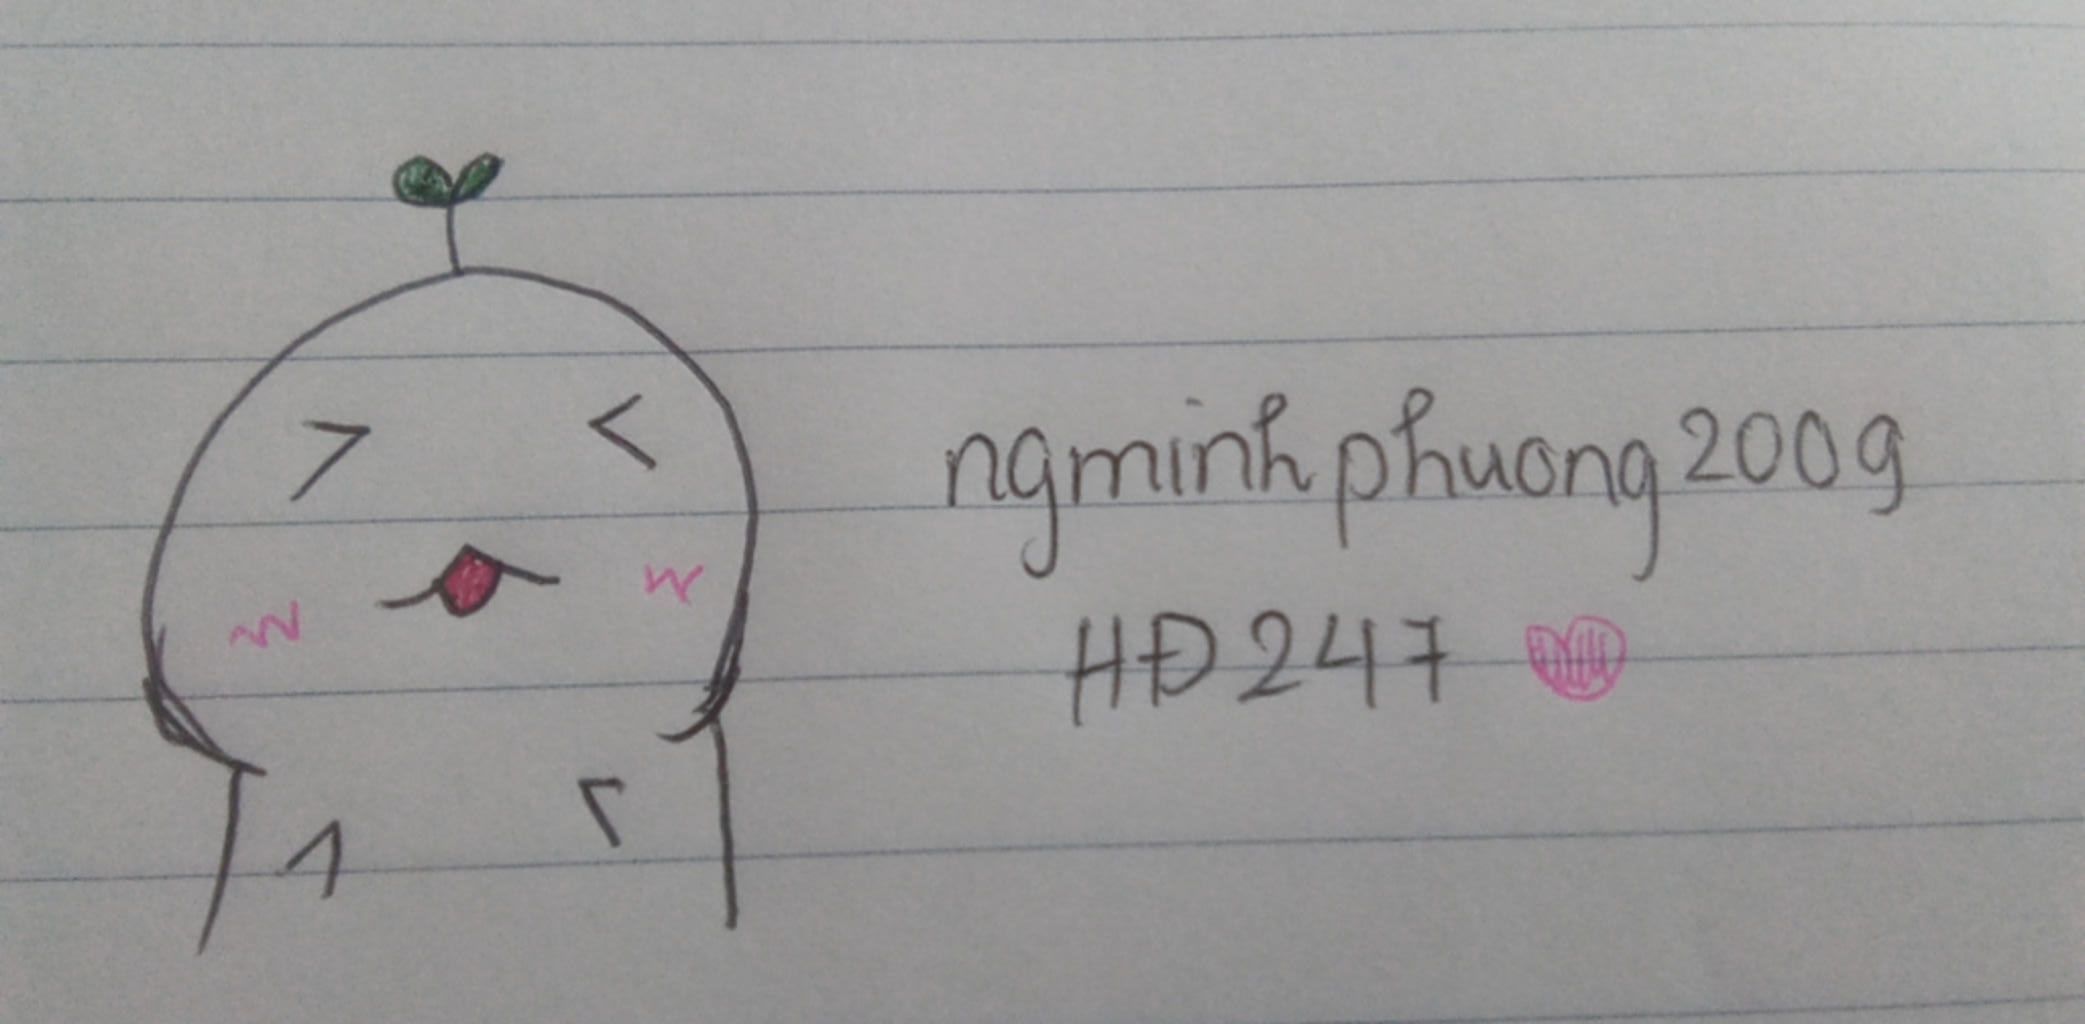 ngminhphuong2009
HĐ247